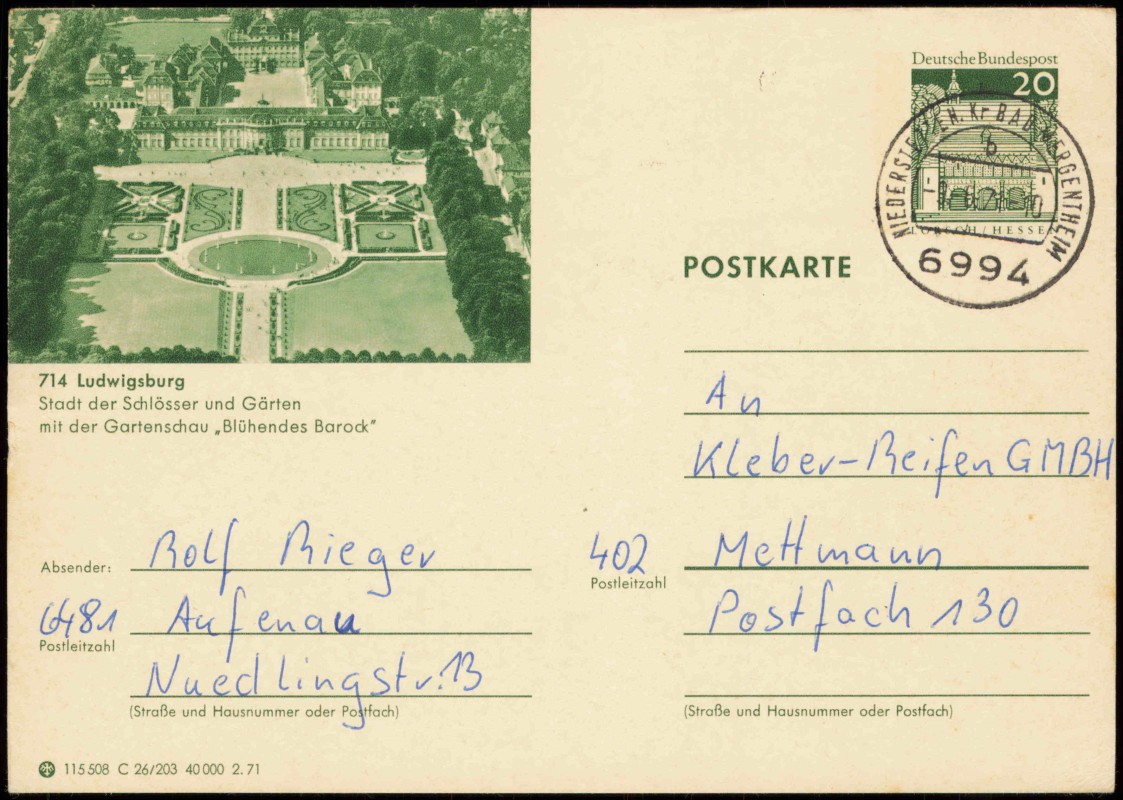 Deutsche Bundespost
20
LORSCH/HESSEN
NIEDERSTETTEN, Kr BAD MERGENTHEIM
b
6994
POSTKARTE
714 Ludwigsburg
Stadt der Schlösser und Gärten
mit der Gartenschau „Blühendes Barock"
An
Kleber-Reifen GMBH
402 Mettmann
Postleitzahl
Postfach 130
(Straße und Hausnummer oder Postfach)
Absender: Rolf Rieger
6481 Aufenau
Postleitzahl
Nuedlingstr. 13
(Straße und Hausnummer oder Postfach)
115 508 C 26/203 40 000 2.71